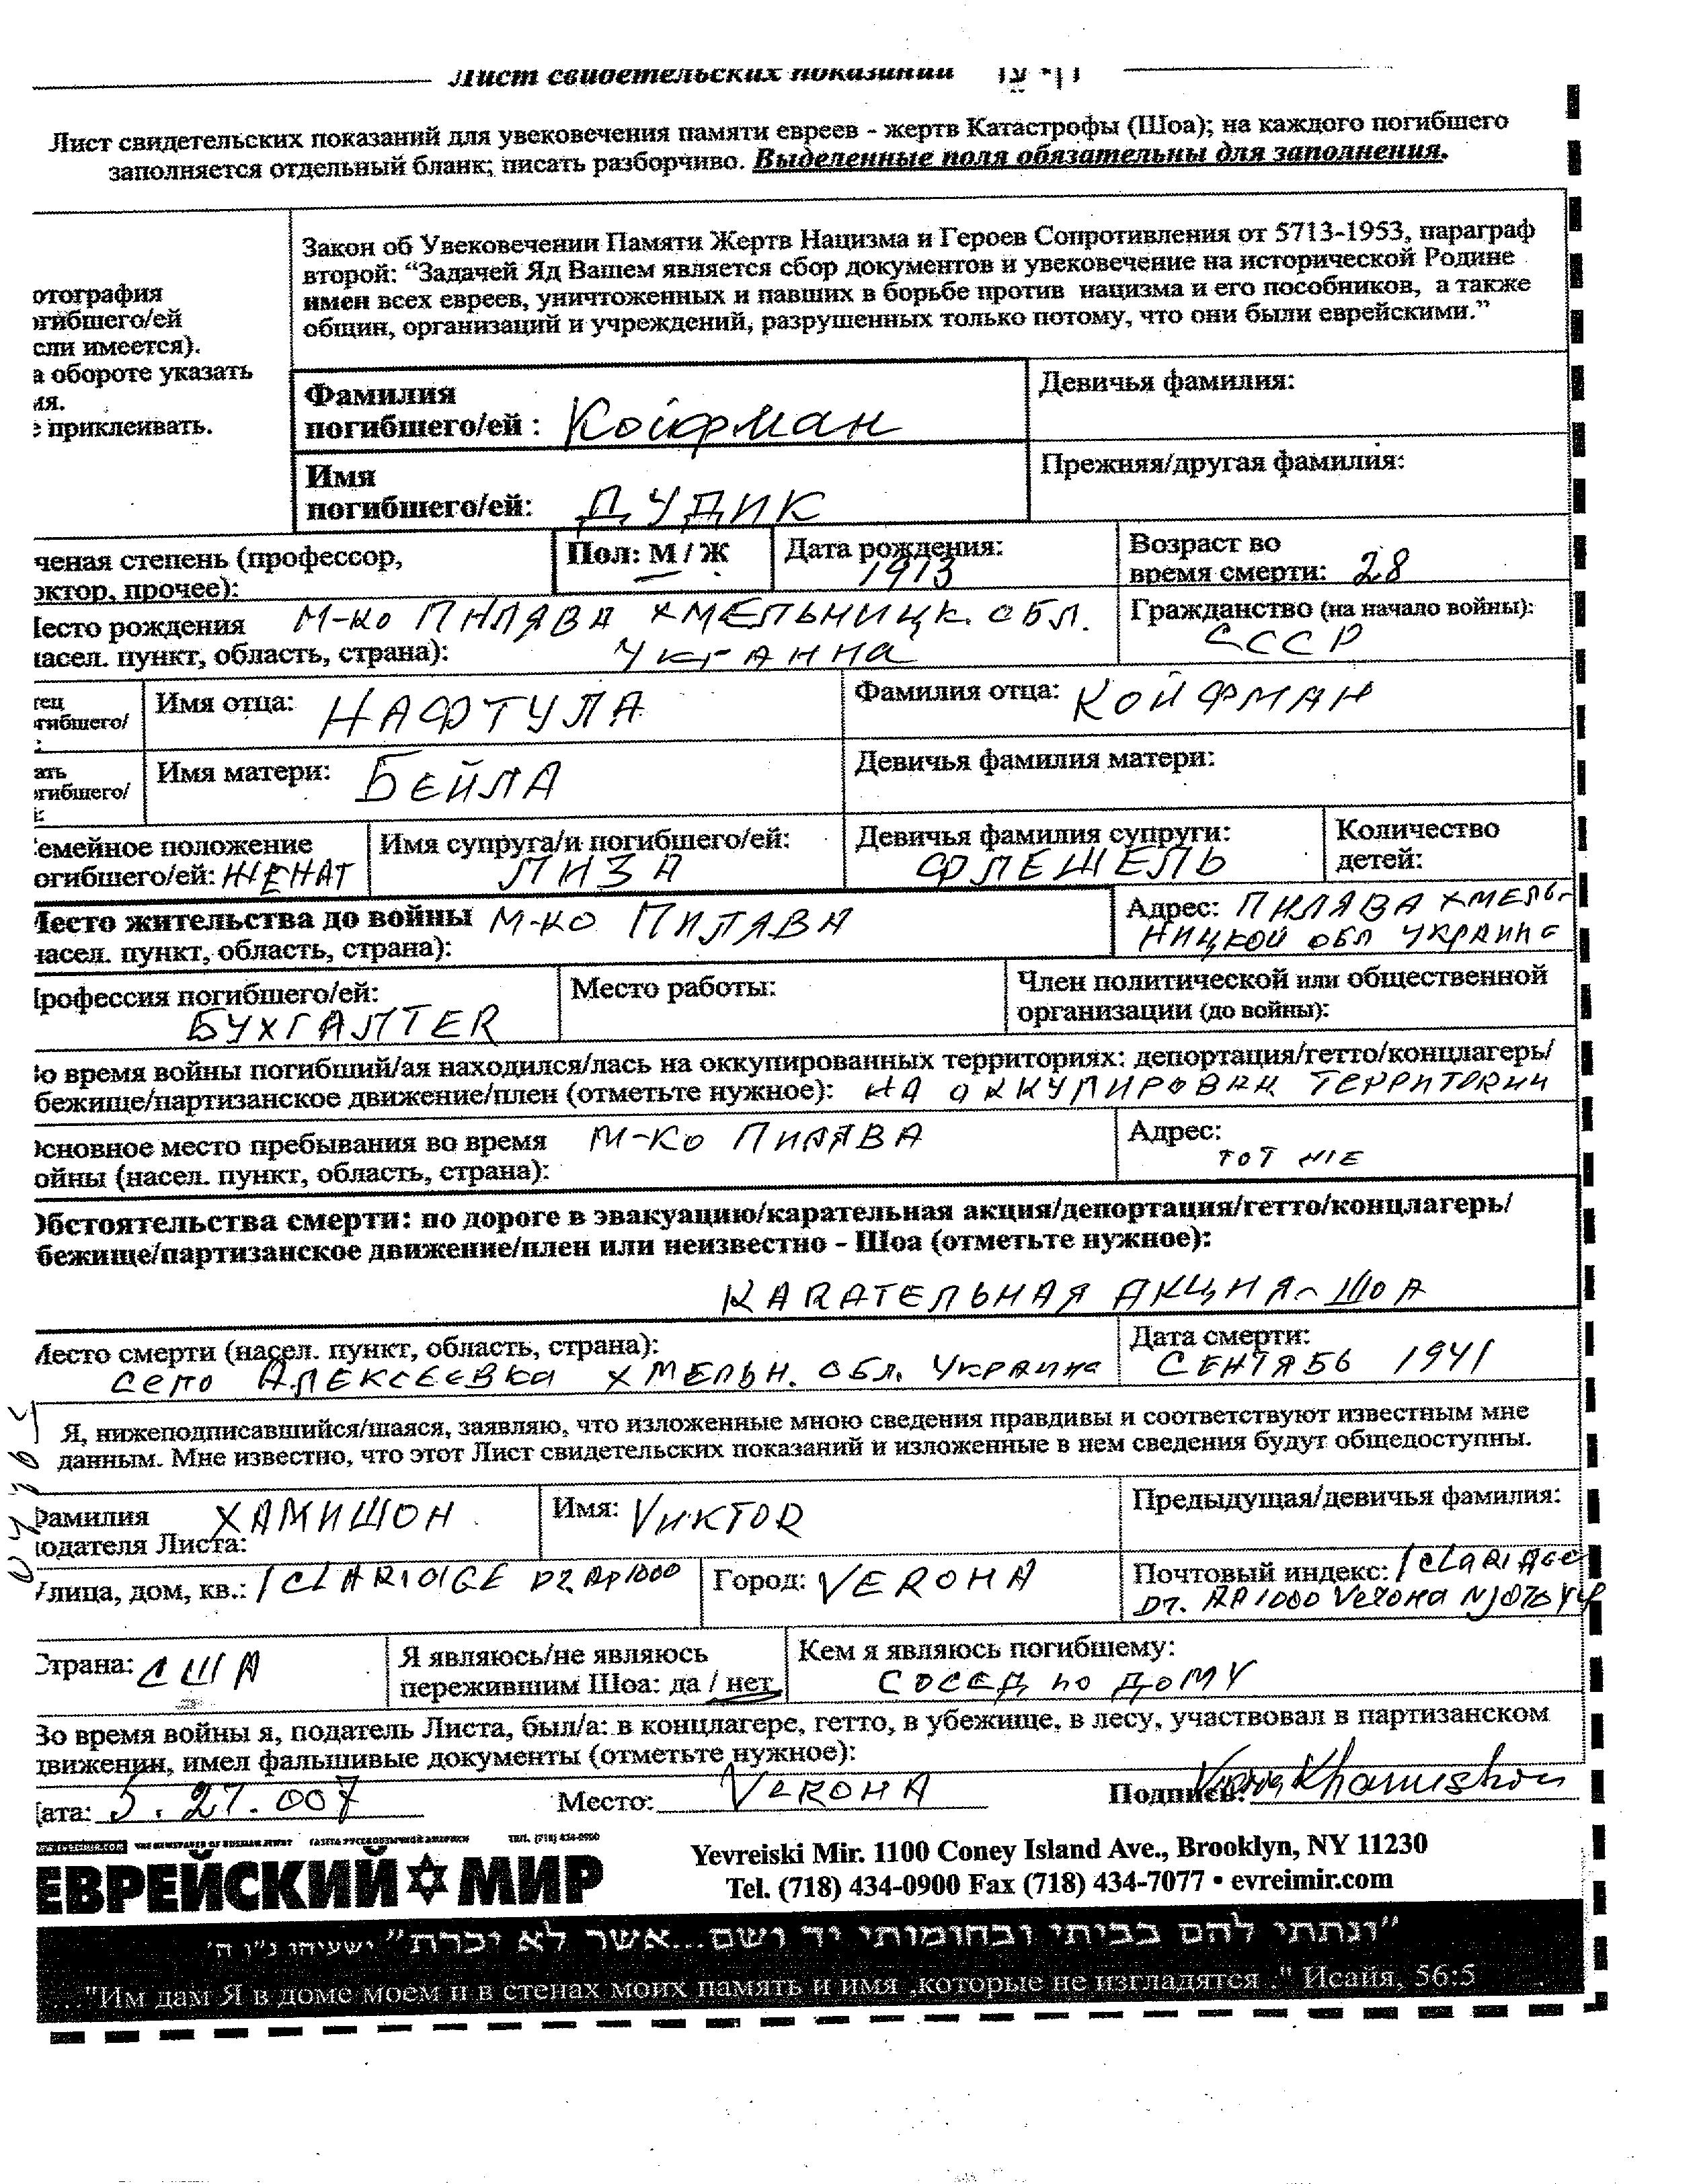 Лист свидетельских показаний
Лист свидетельских показаний для увековечения памяти евреев - жертв Катастрофы (Шоа); на каждого погибшего
заполняется отдельный бланк; писать разборчиво. Выделенные поля обязательны для заполнения.
Закон об Увековечении Памяти Жертв Нацизма и Героев Сопротивления от 5713-1953, параграф
второй: “Задачей Яд Вашем является сбор документов и увековечение на исторической Родине
имен всех евреев, уничтоженных и павших в борьбе против нацизма и его пособников, а также
общин, организаций и учреждений, разрушенных только потому, что они были еврейскими.”
отография
огибшего/ей
сли имеется).
а обороте указать
ия.
е приклеивать.
Фамилия
погибшего/ей : Койфман
Девичья фамилия:
Имя
погибшего/ей: ДУДИК
Прежняя/другая фамилия:
ченая степень (профессор,
октор, прочее):
Пол: М / Ж
Дата рождения:
1913
Возраст во
время смерти: 28
Место рождения М-КО ПИЛЯВА ХМЕЛЬНИЦК. ОБЛ.
насел. пункт, область, страна): Украина
Гражданство (на начало войны):
СССР
тец
огибшего/
Имя отца: НАФТУЛА
Фамилия отца: КОЙФМАН
ать
огибшего/
Имя матери: БЕЙЛА
Девичья фамилия матери:
емейное положение
огибшего/ей: ЖЕНАТ
Имя супруга/и погибшего/ей:
ЛИЗА
Девичья фамилия супруги:
ФЛЕШЕЛЬ
Количество
детей:
Место жительства до войны М-КО ПИЛЯВА
насел. пункт, область, страна):
Адрес: ПИЛЯВА ХМЕЛЬ-
НИЦКОЙ ОБЛ УКРАИНА
Профессия погибшего/ей:
БУХГАЛТЕR
Место работы:
Член политической или общественной
организации (до войны):
о время войны погибший/ая находился/лась на оккупированных территориях: депортация/гетто/концлагерь/
бежище/партизанское движение/плен (отметьте нужное): НА ОККУПИРОВАН ТЕРРИТОРИИ
Основное место пребывания во время М-КО ПИЛЯВА
ойны (насел. пункт, область, страна):
Адрес:
ТОТ ЖЕ
Обстоятельства смерти: по дороге в эвакуацию/карательная акция/депортация/гетто/концлагерь/
бежище/партизанское движение/плен или неизвестно - Шоа (отметьте нужное):
КАRАТЕЛЬНАЯ АКЦИЯ-ШОА
Место смерти (насел. пункт, область, страна):
СЕЛО АЛЕКСЕЕВКА ХМЕЛЬН. ОБЛ. УКРАИНА
Дата смерти:
СЕНТЯБЬ 1941
Я, нижеподписавшийся/шаяся, заявляю, что изложенные мною сведения правдивы и соответствуют известным мне
данным. Мне известно, что этот Лист свидетельских показаний и изложенные в нем сведения будут общедоступны.
Фамилия ХАМИШОН
подателя Листа:
Имя: VИКТОR
Предыдущая/девичья фамилия:
Улица, дом, кв.: 1 CLARIDGE DZ Ap1000
Город: VEROНА
Почтовый индекс: 1 CLARIDGE
DT. AP1000 Verona NJ 07044
Страна: США
Я являюсь/не являюсь
пережившим Шоа: да / нет
Кем я являюсь погибшему:
СОСЕД по ДОМУ
Во время войны я, податель Листа, был/а: в концлагере, гетто, в убежище, в лесу, участвовал в партизанском
движении, имел фальшивые документы (отметьте нужное):
Дата: 5.27.007
Место: VЕRОНА
Подпись: Khamishon
THE NEWSPAPER OF RUSSIAN JEWRY ГАЗЕТА РУССКОЯЗЫЧНОЙ АМЕРИКИ ТЕЛ. (718) 434-0900
ЕВРЕЙСКИЙ МИР
Yevreiski Mir. 1100 Coney Island Ave., Brooklyn, NY 11230
Tel. (718) 434-0900 Fax (718) 434-7077 • evreimir.com
"ונתתי להם בביתי ובחומותי יד ושם...אשר לא יכרת" ישעיהו נ"ו ה'
..."Им дам Я в доме моем и в стенах моих память и имя ,которые не изгладятся ." Исайя, 56:5